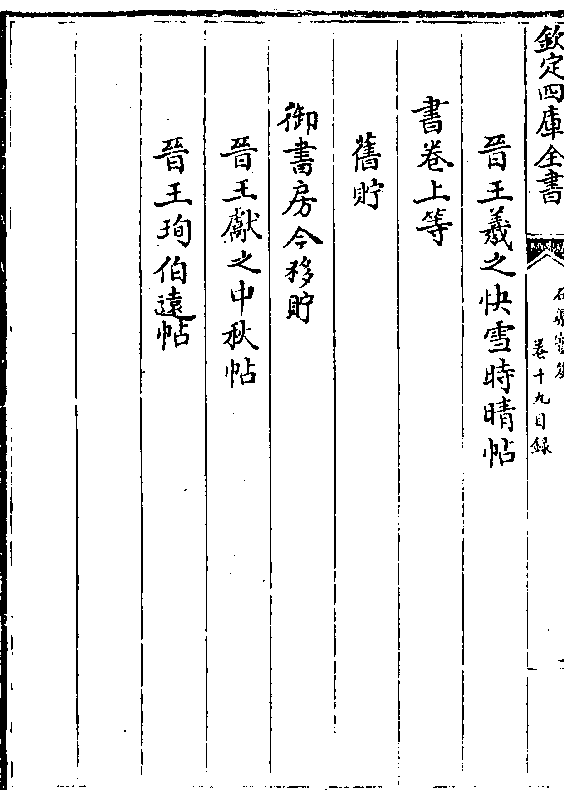 欽定四庫全書
石渠寶笈
卷十九目錄
晉王羲之快雪時晴帖
書卷上等
舊貯
御書房今移貯
晉王獻之中秋帖
晉王珣伯遠帖